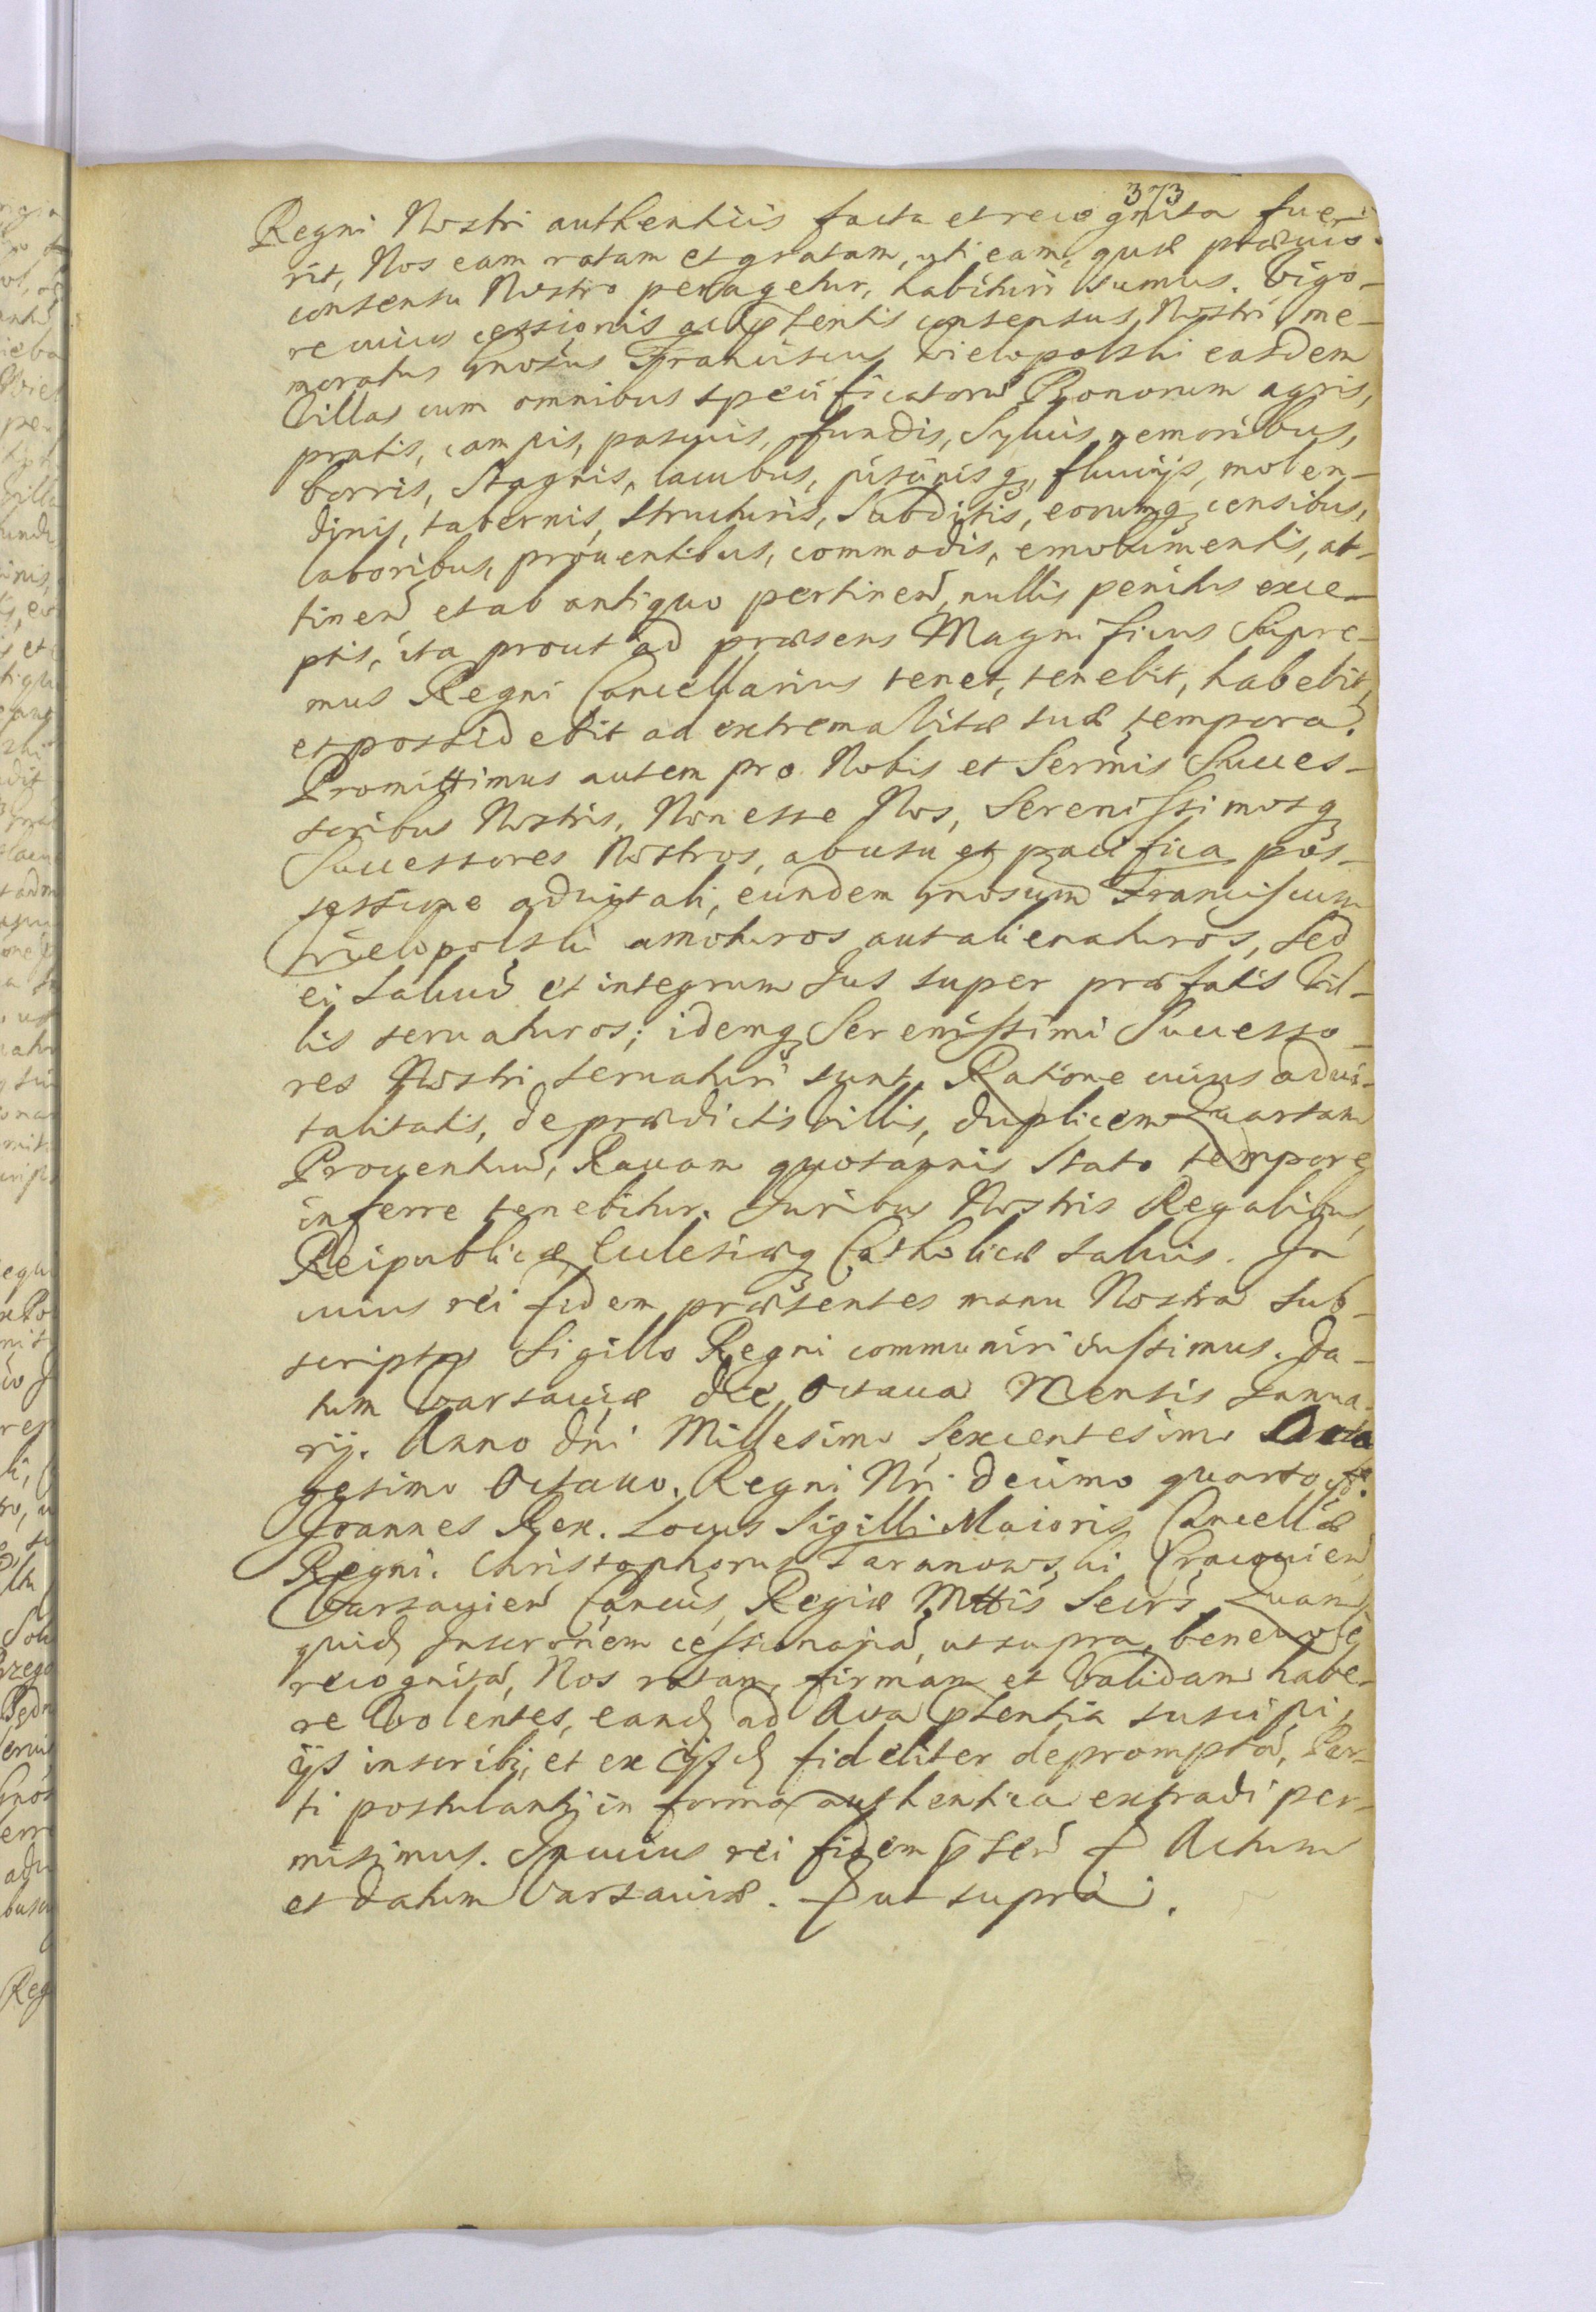 373
Regni Nostri authenticis facta et recognita fue-
rit, Nos eam ratam et gratam, uti eam, quæ præuio
consensu Nostro peragetur, habituri sumus. Vigo-
re cuius cessionis ac pñtentis consensus Nostri me-
moratus Gnosus Franciscus Wielopolski easdem
Villas cum omnibus specificatorũ Bonorum agris,
pratis, campis, pascuis, fundis, Syluis, nemoribus,
borris, Stagnis, lacubus, piscinisq, fluuijs, molen-
dinis, tabernis, structuris, Subditis, eorumq censibus,
laboribus, prouentibus, commodis, emolumentis, at-
tineñ et ab antiquo pertineñ, nullis penitus exce-
ptis, ita prout ad præsens Magnificus Supre-
mus Regni Cancellarius tenet, tenebit, habebit,
et possidebit ad extrema Vitæ suæ tempora.
Promittimus autem pro Nobis et Sermis Succes-
soribus Nostris, Non esse Nos, Serenissimosq
Successores Nostros, ab usu et pacifica pos-
sessione aduitali, eundem Gnosum Franciscum
Wielopolski amoturos aut alienaturos, sed
ei saluũ et integrum Jus super præfatis Vil-
lis seruaturos; idemq Serenissimi Successo-
res Nostri seruaturi sunt. Ratione cuius adui-
talitatis, de prædictis Villis, duplicem Quartam
Prouentuũ, Rauam quotannis stato tempore
inferre tenebitur. Juribus Nostris Regalibus,
Reipublicæ, Ecclesiæq Catholicæ saluis. In
cuius rei fidem præsentes manu Nostra sub-
scriptas Sigillo Regni communiri iussimus. Da-
tum Varsauiæ die Octaua Mensis Janua-
rij. Anno Dni Millesimo Sexcentesimo Octua
gesimo Octauo. Regni Nri decimo quarto
Joannes Rex. Locus Sigilli Maioris Cancellæ
Regni. Christophorus Taranowski Cracouieñ
Varsauieñ Cancus, Regiæ Mttis Secrs. Quam
quid Inscrõnem cessionariã, ut supra, beneuole
recognitã, Nos ratam, firmam et Validam habe-
re Volentes, eand ad Acta pñtentia suscipi,
ijs inscribi, et ex ijsd fideliter depromptã, Par-
ti postulanti in forma authentica extradi per-
misimus. In cuius rei fidem pñteñ Actum
et Datum Varsauiæ. ut supra.